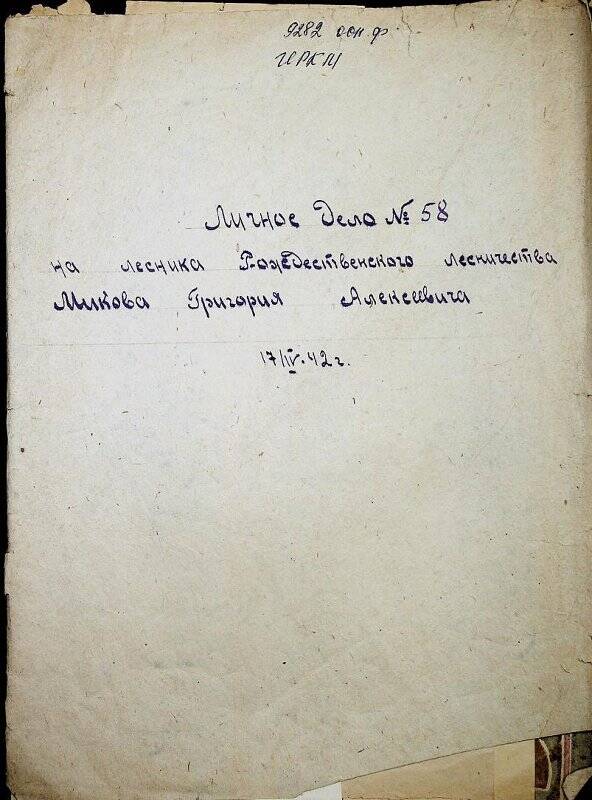 9282 осн. ф
ЧРКМ
Личное Дело № 58
на лесника Рождественского лесничества
Микова Григория Алексеевича
17/IV-42 г.